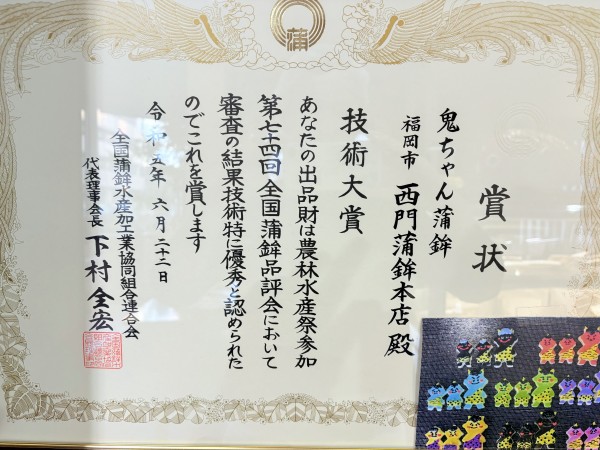 蒲
賞状
鬼ちゃん蒲鉾
福岡市 西門蒲鉾本店 殿
技術大賞
あなたの出品財は農林水産祭参加
第七十四回全国蒲鉾品評会において
審査の結果技術特に優秀と認められた
のでこれを賞します
令和五年 六月二十二日
全国蒲鉾水産加工業協同組合連合会
代表理事会長 下村全宏